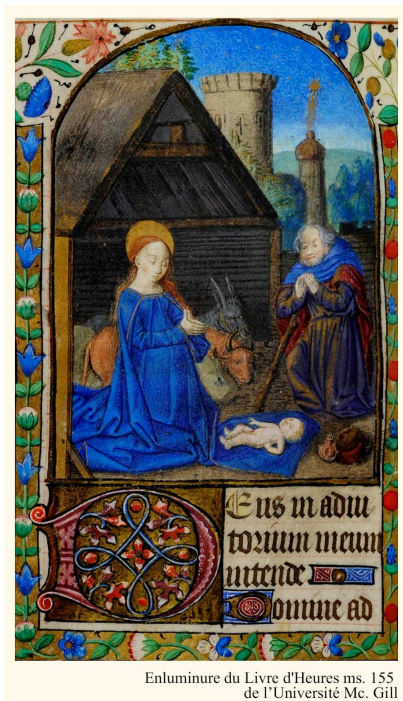 Deus in adiu
torium meum
intende
Domine ad
Enluminure du Livre d'Heures ms. 155
de l'Université Mc. Gill